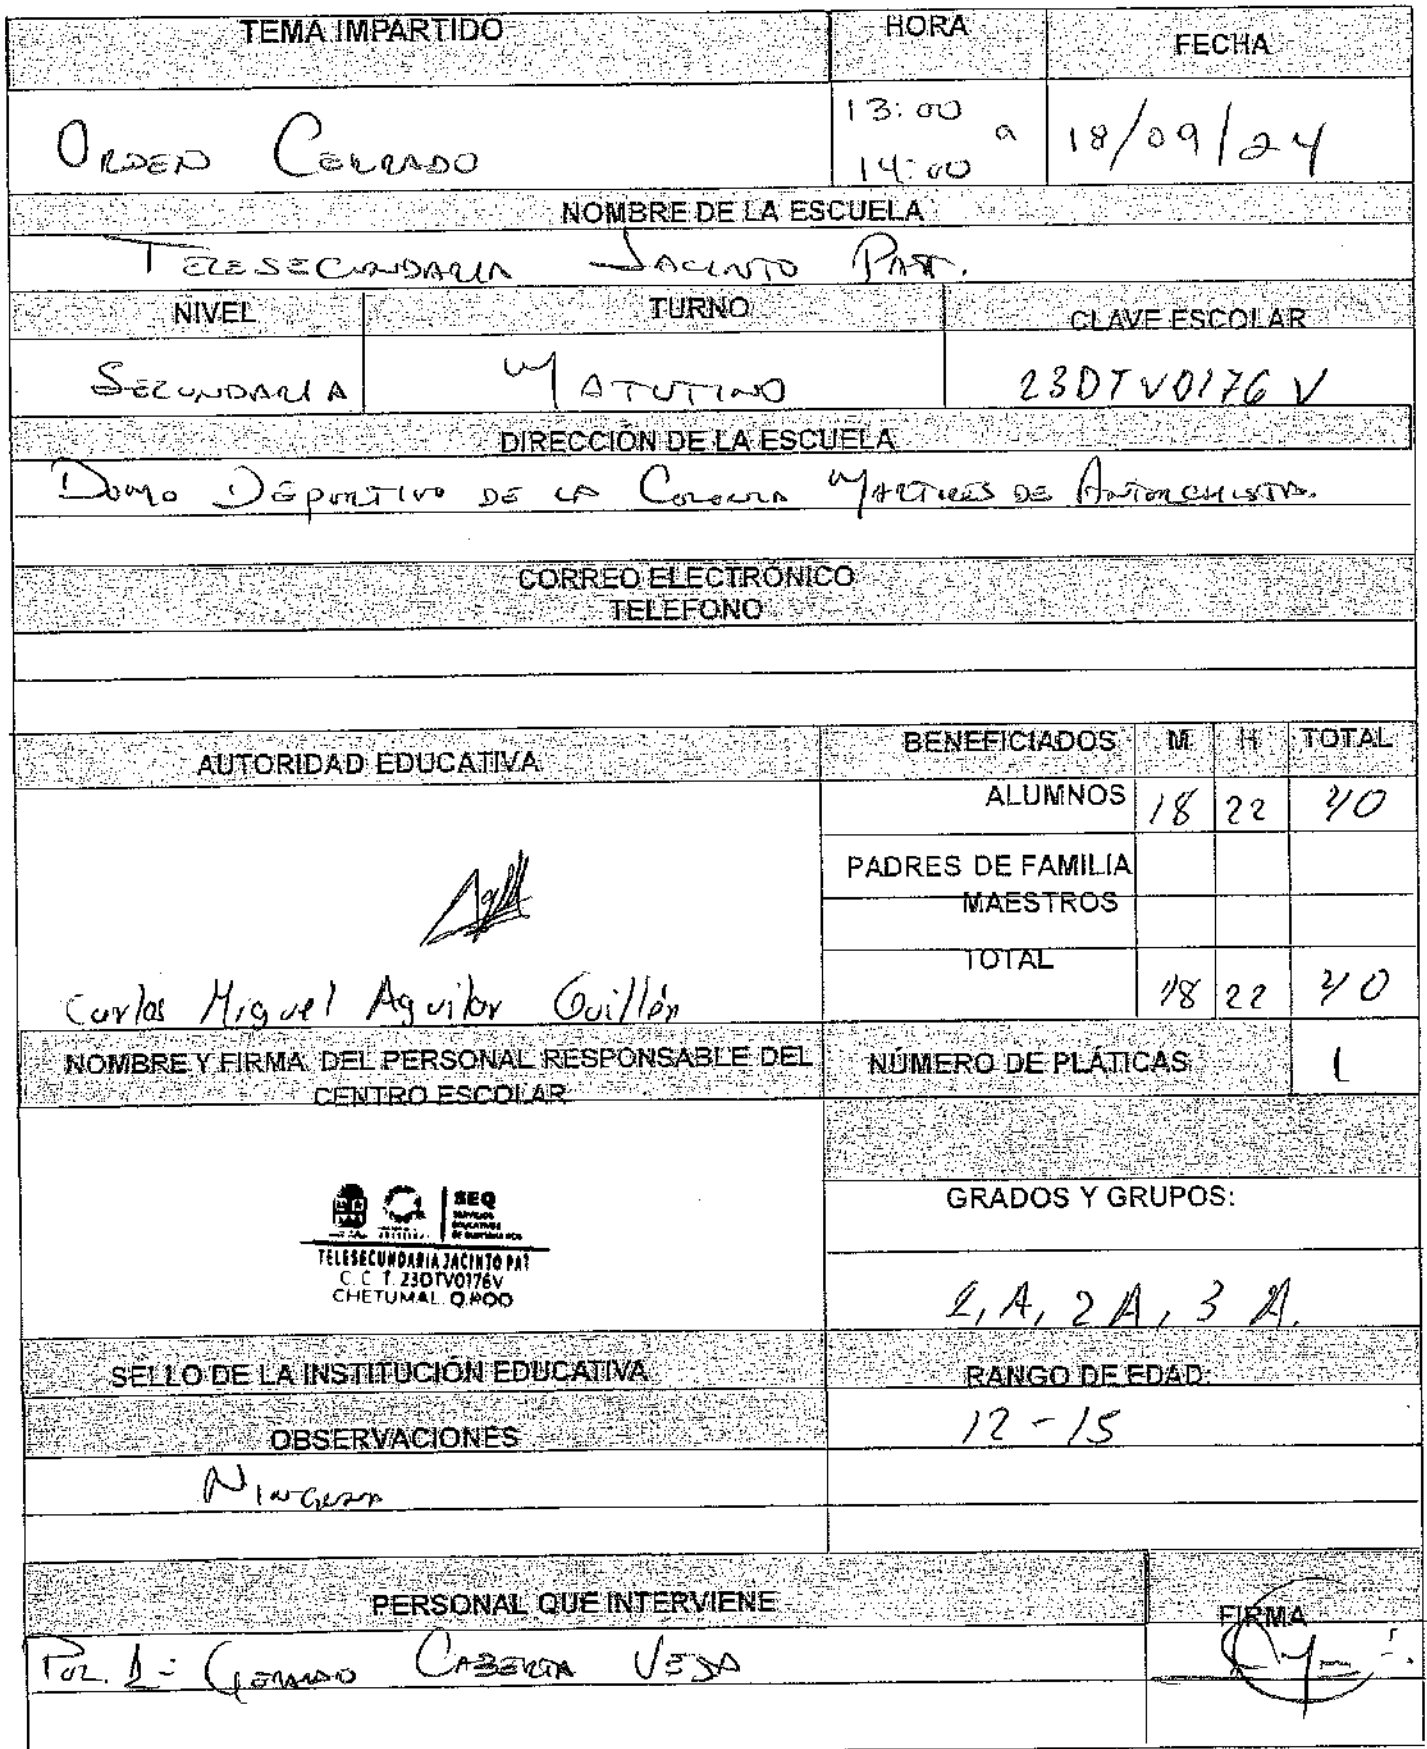 TEMA IMPARTIDO HORA FECHA
ORDEN CERRADO 13:00 a 14:00 18/09/24
NOMBRE DE LA ESCUELA
TELESECUNDARIA JACINTO PAT.
NIVEL TURNO CLAVE ESCOLAR
SECUNDARIA MATUTINO 23DTV0176V
DIRECCIÓN DE LA ESCUELA
DOMO DEPORTIVO DE LA COLONIA MARTIRES DE ANTORCHISTA.
CORREO ELECTRÓNICO
TELEFONO
AUTORIDAD EDUCATIVA BENEFICIADOS M H TOTAL
ALUMNOS 18 22 40
PADRES DE FAMILIA
MAESTROS
TOTAL 18 22 40
Carlos Miguel Aguilar Guillén
NOMBRE Y FIRMA DEL PERSONAL RESPONSABLE DEL CENTRO ESCOLAR NÚMERO DE PLÁTICAS 1
SEQ
SERVICIOS
EDUCATIVOS
DE QUINTANA ROO
TELESECUNDARIA JACINTO PAT
C. C. T. 23DTV0176V
CHETUMAL. Q.ROO
GRADOS Y GRUPOS:
1, A, 2 A, 3 A.
SELLO DE LA INSTITUCIÓN EDUCATIVA RANGO DE EDAD:
12-15
OBSERVACIONES
NINGUNA
PERSONAL QUE INTERVIENE FIRMA
POL. GERARDO VEGA